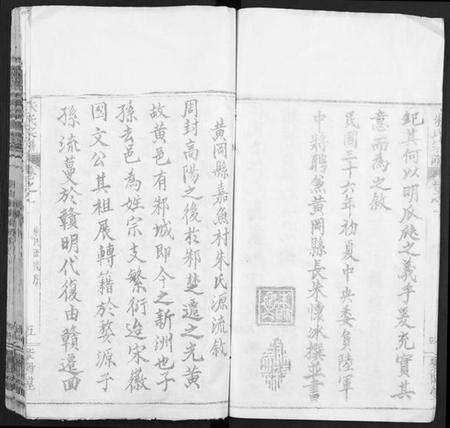 紀其何以明瓜瓞之義乎爰充實其
意而為之敘
民國三十六年初夏中央委員陸軍
中將聘無黃岡縣長朱懷冰撰並書
黃岡縣嘉魚村朱氏源流敘
周封高陽之後於邾楚遷之光黃
故黃邑有邾城即今之新洲也子
孫去邑為姓宗支繁衍迨宋徽
國文公其祖展轉籍於婺源子
孫流蔓於贛明代復由贛遷回